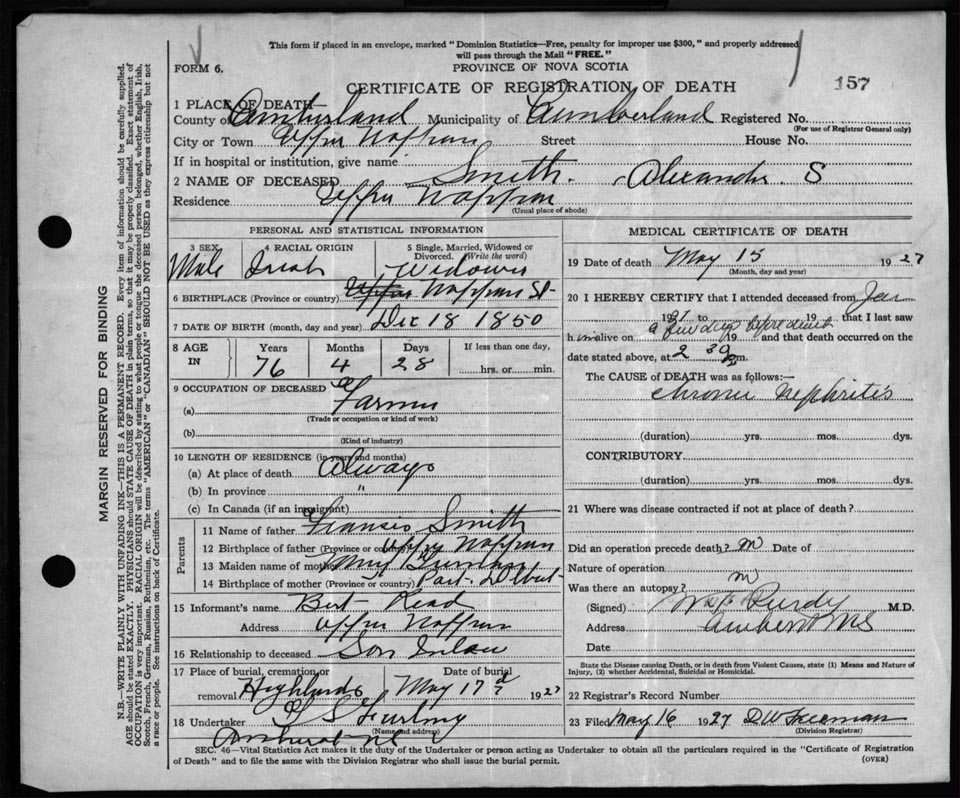 This form if placed in an envelope, marked "Dominion Statistics—Free, penalty for improper use $300," and properly addressed
will pass through the Mail "FREE."
FORM 6.
PROVINCE OF NOVA SCOTIA
CERTIFICATE OF REGISTRATION OF DEATH
157
1 PLACE OF DEATH—
County of Cumberland Municipality of Cumberland Registered No.
(For use of Registrar General only)
City or Town Upper Nappan Street House No.
If in hospital or institution, give name
2 NAME OF DECEASED Smith. Alexander S
Residence Upper Nappan
(Usual place of abode)
PERSONAL AND STATISTICAL INFORMATION
3 SEX 4 RACIAL ORIGIN 5 Single, Married, Widowed or Divorced. (Write the word)
Male Irish Widower
6 BIRTHPLACE (Province or country) Upper Nappan
7 DATE OF BIRTH (month, day and year) Dec 18 1850
8 AGE IN Years Months Days If less than one day,
76 4 28 hrs. or min.
9 OCCUPATION OF DECEASED
(a) Farmer
(Trade or occupation or kind of work)
(b)
(Kind of industry)
10 LENGTH OF RESIDENCE (in years and months)
(a) At place of death Always
(b) In province "
(c) In Canada (if an immigrant)
Parents
11 Name of father Francis Smith
12 Birthplace of father (Province or country) Upper Nappan
13 Maiden name of mother Mary
14 Birthplace of mother (Province or country) Port
15 Informant's name Bert Read
Address Upper Nappan
16 Relationship to deceased Son Inlaw
17 Place of burial, cremation or removal Date of burial
Highlands May 17 1927
18 Undertaker
(Name and address)
Amherst NS
MEDICAL CERTIFICATE OF DEATH
19 Date of death May 15 1927
(Month, day and year)
20 I HEREBY CERTIFY that I attended deceased from Jan
1927 to 19 that I last saw
him alive on a few days before death 19 and that death occurred on the
date stated above, at 2 30 m.
The CAUSE of DEATH was as follows:—
Chronic Nephritis
(duration) yrs. mos. dys.
CONTRIBUTORY
(duration) yrs. mos. dys.
21 Where was disease contracted if not at place of death?
Did an operation precede death? no Date of
Nature of operation
Was there an autopsy? no
(Signed) Purdy M.D.
Address Amherst NS
Date
State the Disease causing Death, or in death from Violent Causes, state (1) Means and Nature of
Injury, (2) whether Accidental, Suicidal or Homicidal.
22 Registrar's Record Number
23 Filed May 16 1927 D W Freeman
(Division Registrar)
SEC. 46—Vital Statistics Act makes it the duty of the Undertaker or person acting as Undertaker to obtain all the particulars required in the "Certificate of Registration
of Death" and to file the same with the Division Registrar who shall issue the burial permit.
(OVER)
MARGIN RESERVED FOR BINDING
N.B.—WRITE PLAINLY WITH UNFADING INK—THIS IS A PERMANENT RECORD. Every item of information should be carefully supplied.
AGE should be stated EXACTLY. PHYSICIANS should STATE CAUSE OF DEATH in plain terms, so that it may be properly classified. Exact statement of
OCCUPATION is very important. RACIAL ORIGIN will be described by stating to what people or tongue the deceased person belonged, whether English, Irish,
Scotch, French, German, Russian, Ruthenian, etc. The terms "AMERICAN" or "CANADIAN" SHOULD NOT BE USED as they express citizenship but not
a race or people. See instructions on back of Certificate.